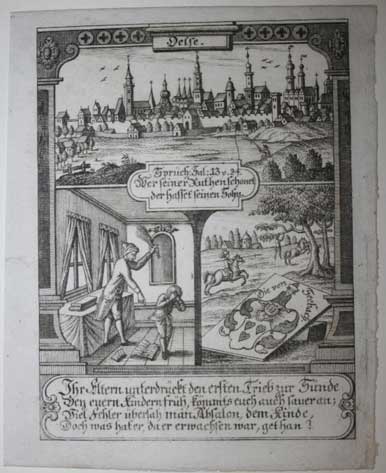 Oelse.
Spruch. Sal: 13 v. 24.
Wer seiner Ruthen schonet
der hasset seinen Sohn.
Die von
Ihr Eltern unterdrückt den ersten Trieb zur Sünde
Bey euern Kindern früh, kommts euch auch sauer an;
Viel Fehler übersah man Absalon, dem Kinde,
Doch was hat er, da er erwachsen war, gethan?